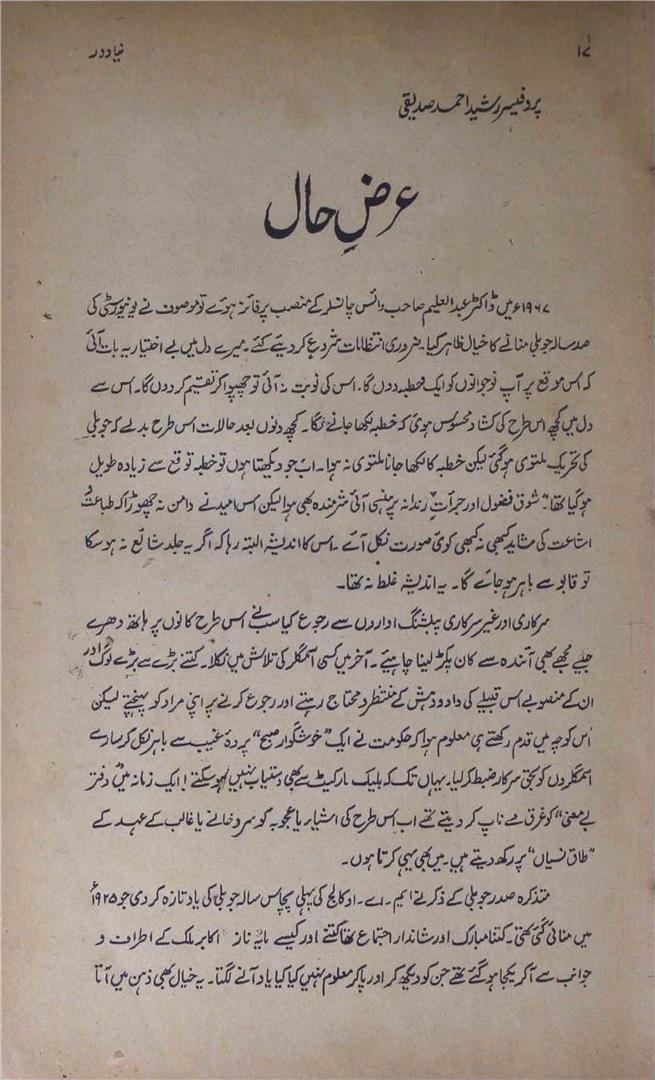 ۱۷ نیا دور
پروفیسر رشید احمد صدیقی
عرضِ حال
۱۹۶۷ء میں ڈاکٹر عبدالعلیم صاحب وائس چانسلر کے منصب پر فائز ہوئے تو موصوف نے یونیورسٹی کی
صد سالہ جوبلی منانے کا خیال ظاہر کیا۔ ضروری انتظامات شروع کر دیئے گئے۔ میرے دل میں بے اختیار یہ بات آئی
کہ اس موقع پر آپ نوجوانوں کو ایک خطبہ دوں گا۔ اس کی نوبت نہ آئی تو چھپوا کر تقسیم کر دوں گا۔ اس سے
دل میں کچھ اس طرح کی کشاد محسوس ہوئی کہ خطبہ لکھا جانے لگا۔ کچھ دنوں بعد حالات اس طرح بدلے کہ جوبلی
کی تحریک ملتوی ہو گئی لیکن خطبہ کا لکھا جانا ملتوی نہ ہوا۔ اب جو دیکھتا ہوں تو خطبہ توقع سے زیادہ طویل
ہو گیا تھا۔ "شوق فضول اور جرأتِ رندانہ" پر ہنسی آئی شرمندہ بھی ہوا لیکن اس امید نے دامن نہ چھوڑا کہ طباعت و
اشاعت کی شاید کبھی نہ کبھی کوئی صورت نکل آئے۔ اس کا اندیشہ البتہ رہا کہ اگر یہ جلد شائع نہ ہو سکا
تو قابو سے باہر ہو جائے گا۔ یہ اندیشہ غلط نہ تھا۔
سرکاری اور غیر سرکاری پبلشنگ اداروں سے رجوع کیا سب نے اس طرح کانوں پر ہاتھ دھرے
جیسے مجھے بھی آئندہ سے کان پکڑ لینا چاہیے۔ آخر میں کسی اسمگلر کی تلاش میں نکلا۔ کتنے بڑے سے بڑے لوگ اور
ان کے منصوبے اس قبیلے کی داد و دہش کے منتظر و محتاج رہتے اور رجوع کرنے پر اپنی مراد کو پہنچتے لیکن
اس کوچہ میں قدم رکھتے ہی معلوم ہوا کہ حکومت نے ایک "خوشگوار صبح" پردۂ غیب سے باہر نکل کر سارے
اسمگلروں کو بحق سرکار ضبط کر لیا۔ یہاں تک کہ بلیک مارکیٹ سے بھی دستیاب نہیں ہو سکتے! ایک زمانہ میں "دفتر
بے معنی" کو غرق مے ناب کر دیتے تھے اب اس طرح کی اشیاء یا عجوبہ کو سرد خانے یا غالب کے عہد کے
"طاق نسیاں" پر رکھ دیتے ہیں۔ میں بھی یہی کرتا ہوں۔
متذکرہ صدر جوبلی کے ذکر نے ایم۔اے۔او کالج کی پہلی پچاس سالہ جوبلی کی یاد تازہ کر دی جو ۱۹۲۵ء
میں منائی گئی تھی۔ کتنا مبارک اور شاندار اجتماع تھا کتنے اور کیسے مایۂ ناز اکابر ملک کے اطراف و
جوانب سے آ کر یکجا ہو گئے تھے جن کو دیکھ کر اور پا کر معلوم نہیں کیا کیا یاد آنے لگتا۔ یہ خیال بھی ذہن میں آتا